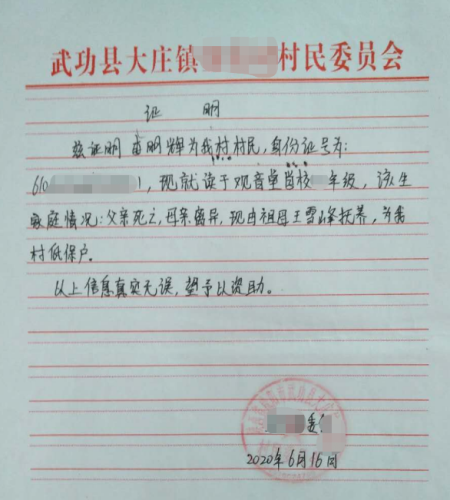 武功县大庄镇 村民委员会
证 明
兹证明 苗明辉为我村村民,身份证号为:
610 ),现就读于观音堂学校 年级,该生
家庭情况:父亲死亡,母亲离异,现由祖母王雪峰抚养,为我
村低保户。
以上信息真实无误,望予以资助。
委
2020年6月16日